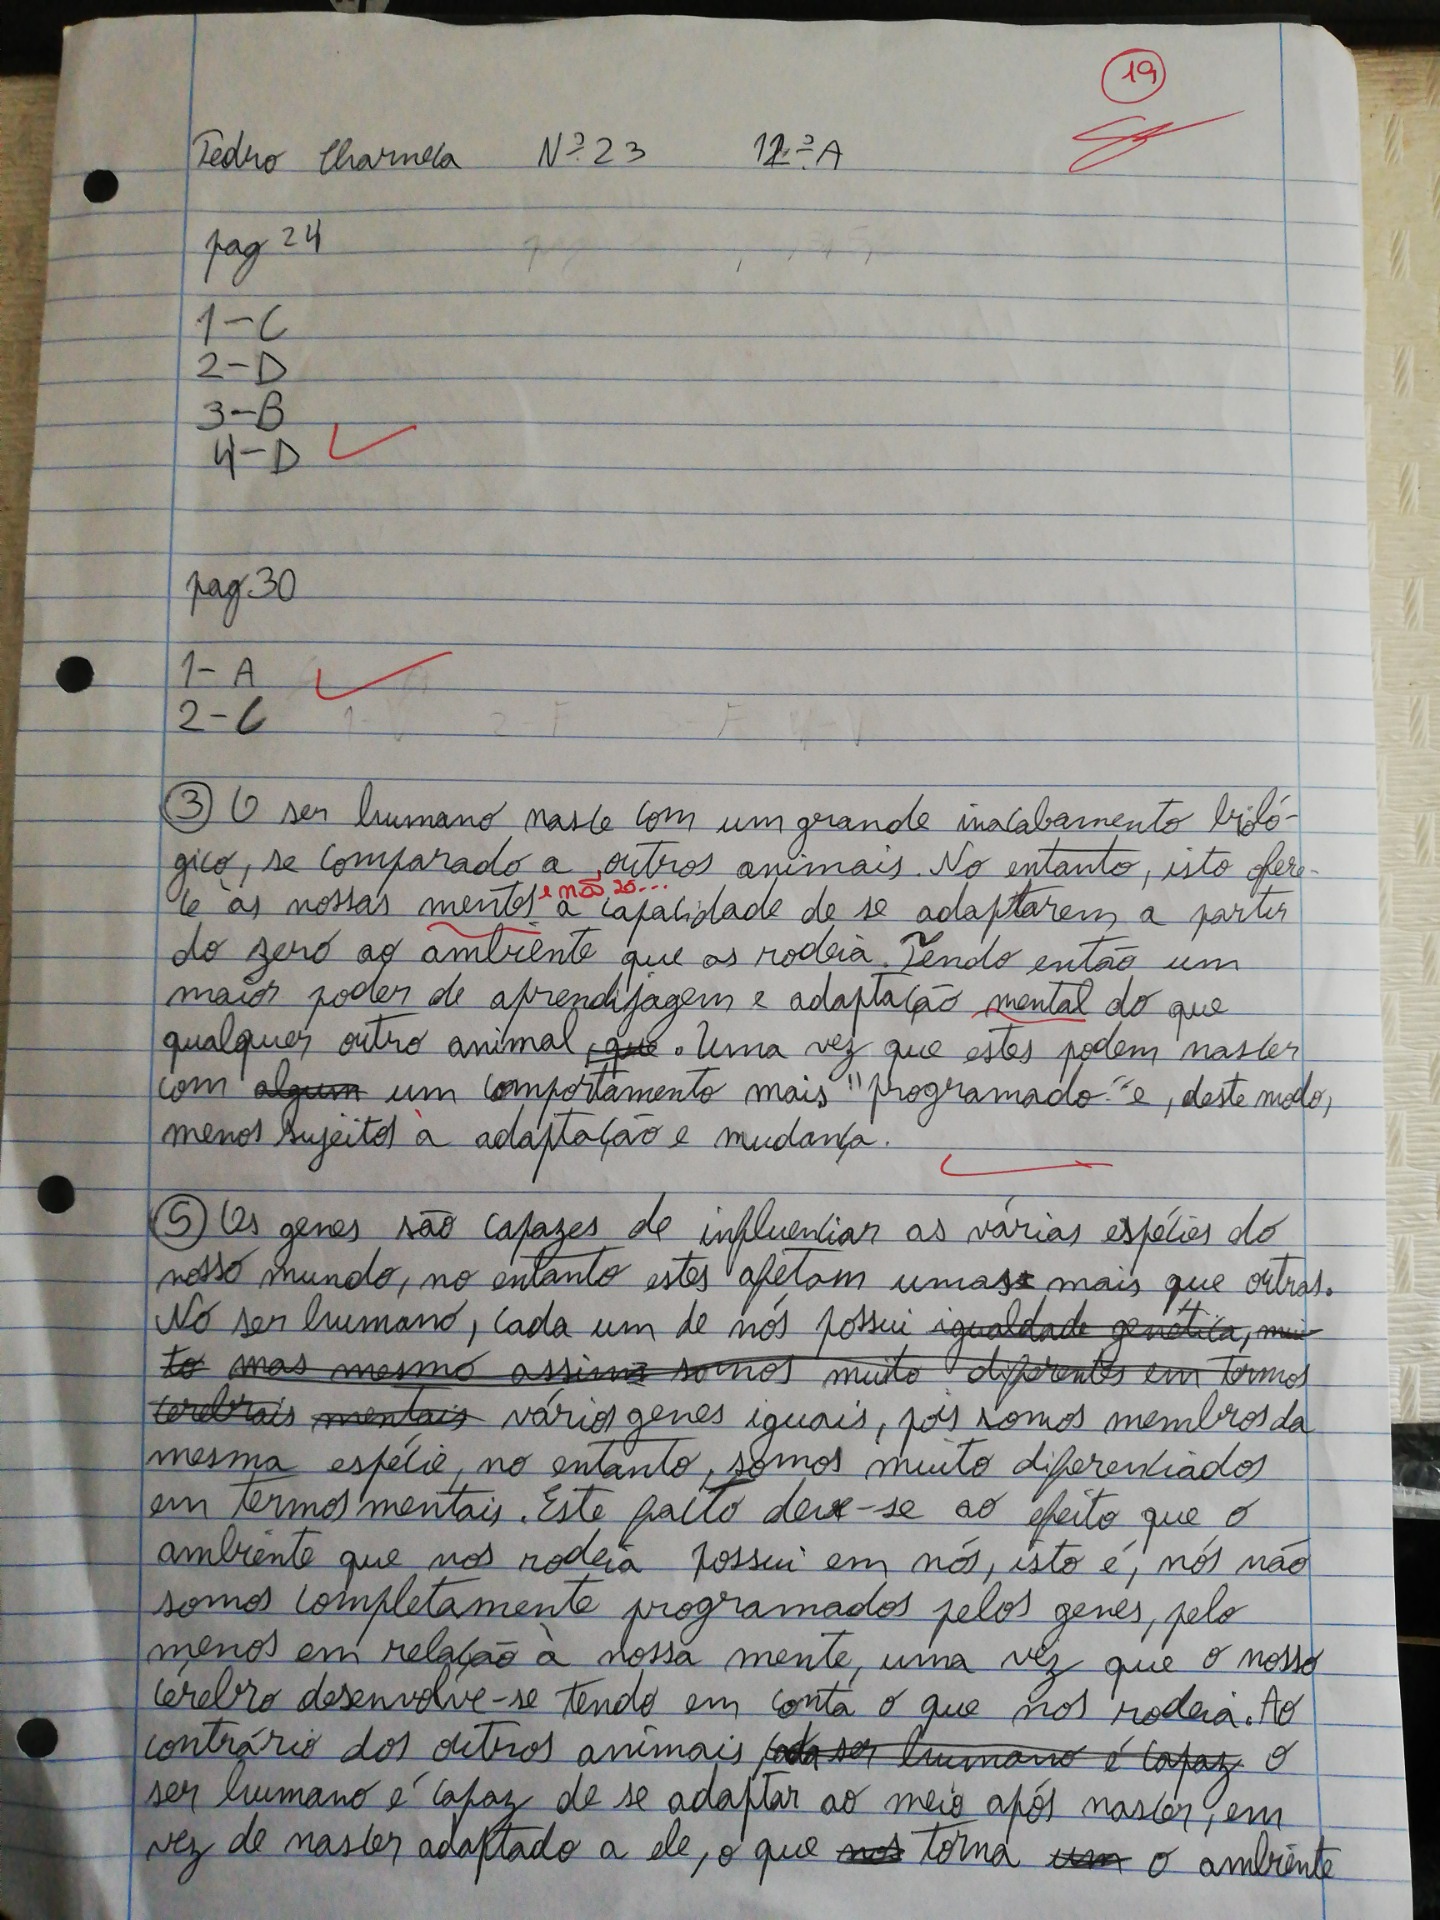 19
Pedro Charneca Nº23 12ºA
pag 24
1-C
2-D
3-B
4-D
pag.30
1- A
2-C
③ O ser humano nasce com um grande inacabamento bioló-
gico, se comparado a outros animais. No entanto, isto ofere-
e não só...
ce às nossas mentes a capacidade de se adaptarem a partir
do zero ao ambiente que as rodeia. Tendo então um
maior poder de aprendizagem e adaptação mental do que
qualquer outro animal, que. Uma vez que estes podem nascer
com algum um comportamento mais "programado" e, deste modo,
menos sujeitos à adaptação e mudança.
⑤ Os genes são capazes de influenciar as várias espécies do
nosso mundo, no entanto estes afetam umas mais que outras.
No ser humano, cada um de nós possui igualdade genética, mui-
to mas mesmo assim somos muito diferentes em termos
cerebrais mentais vários genes iguais, pois somos membros da
mesma espécie, no entanto, somos muito diferenciados
em termos mentais. Este facto deve-se ao efeito que o
ambiente que nos rodeia possui em nós, isto é, nós não
somos completamente programados pelos genes, pelo
menos em relação à nossa mente, uma vez que o nosso
cérebro desenvolve-se tendo em conta o que nos rodeia. Ao
contrário dos outros animais, cada ser humano é capaz o
ser humano é capaz de se adaptar ao meio após nascer, em
vez de nascer adaptado a ele, o que nos torna um o ambiente